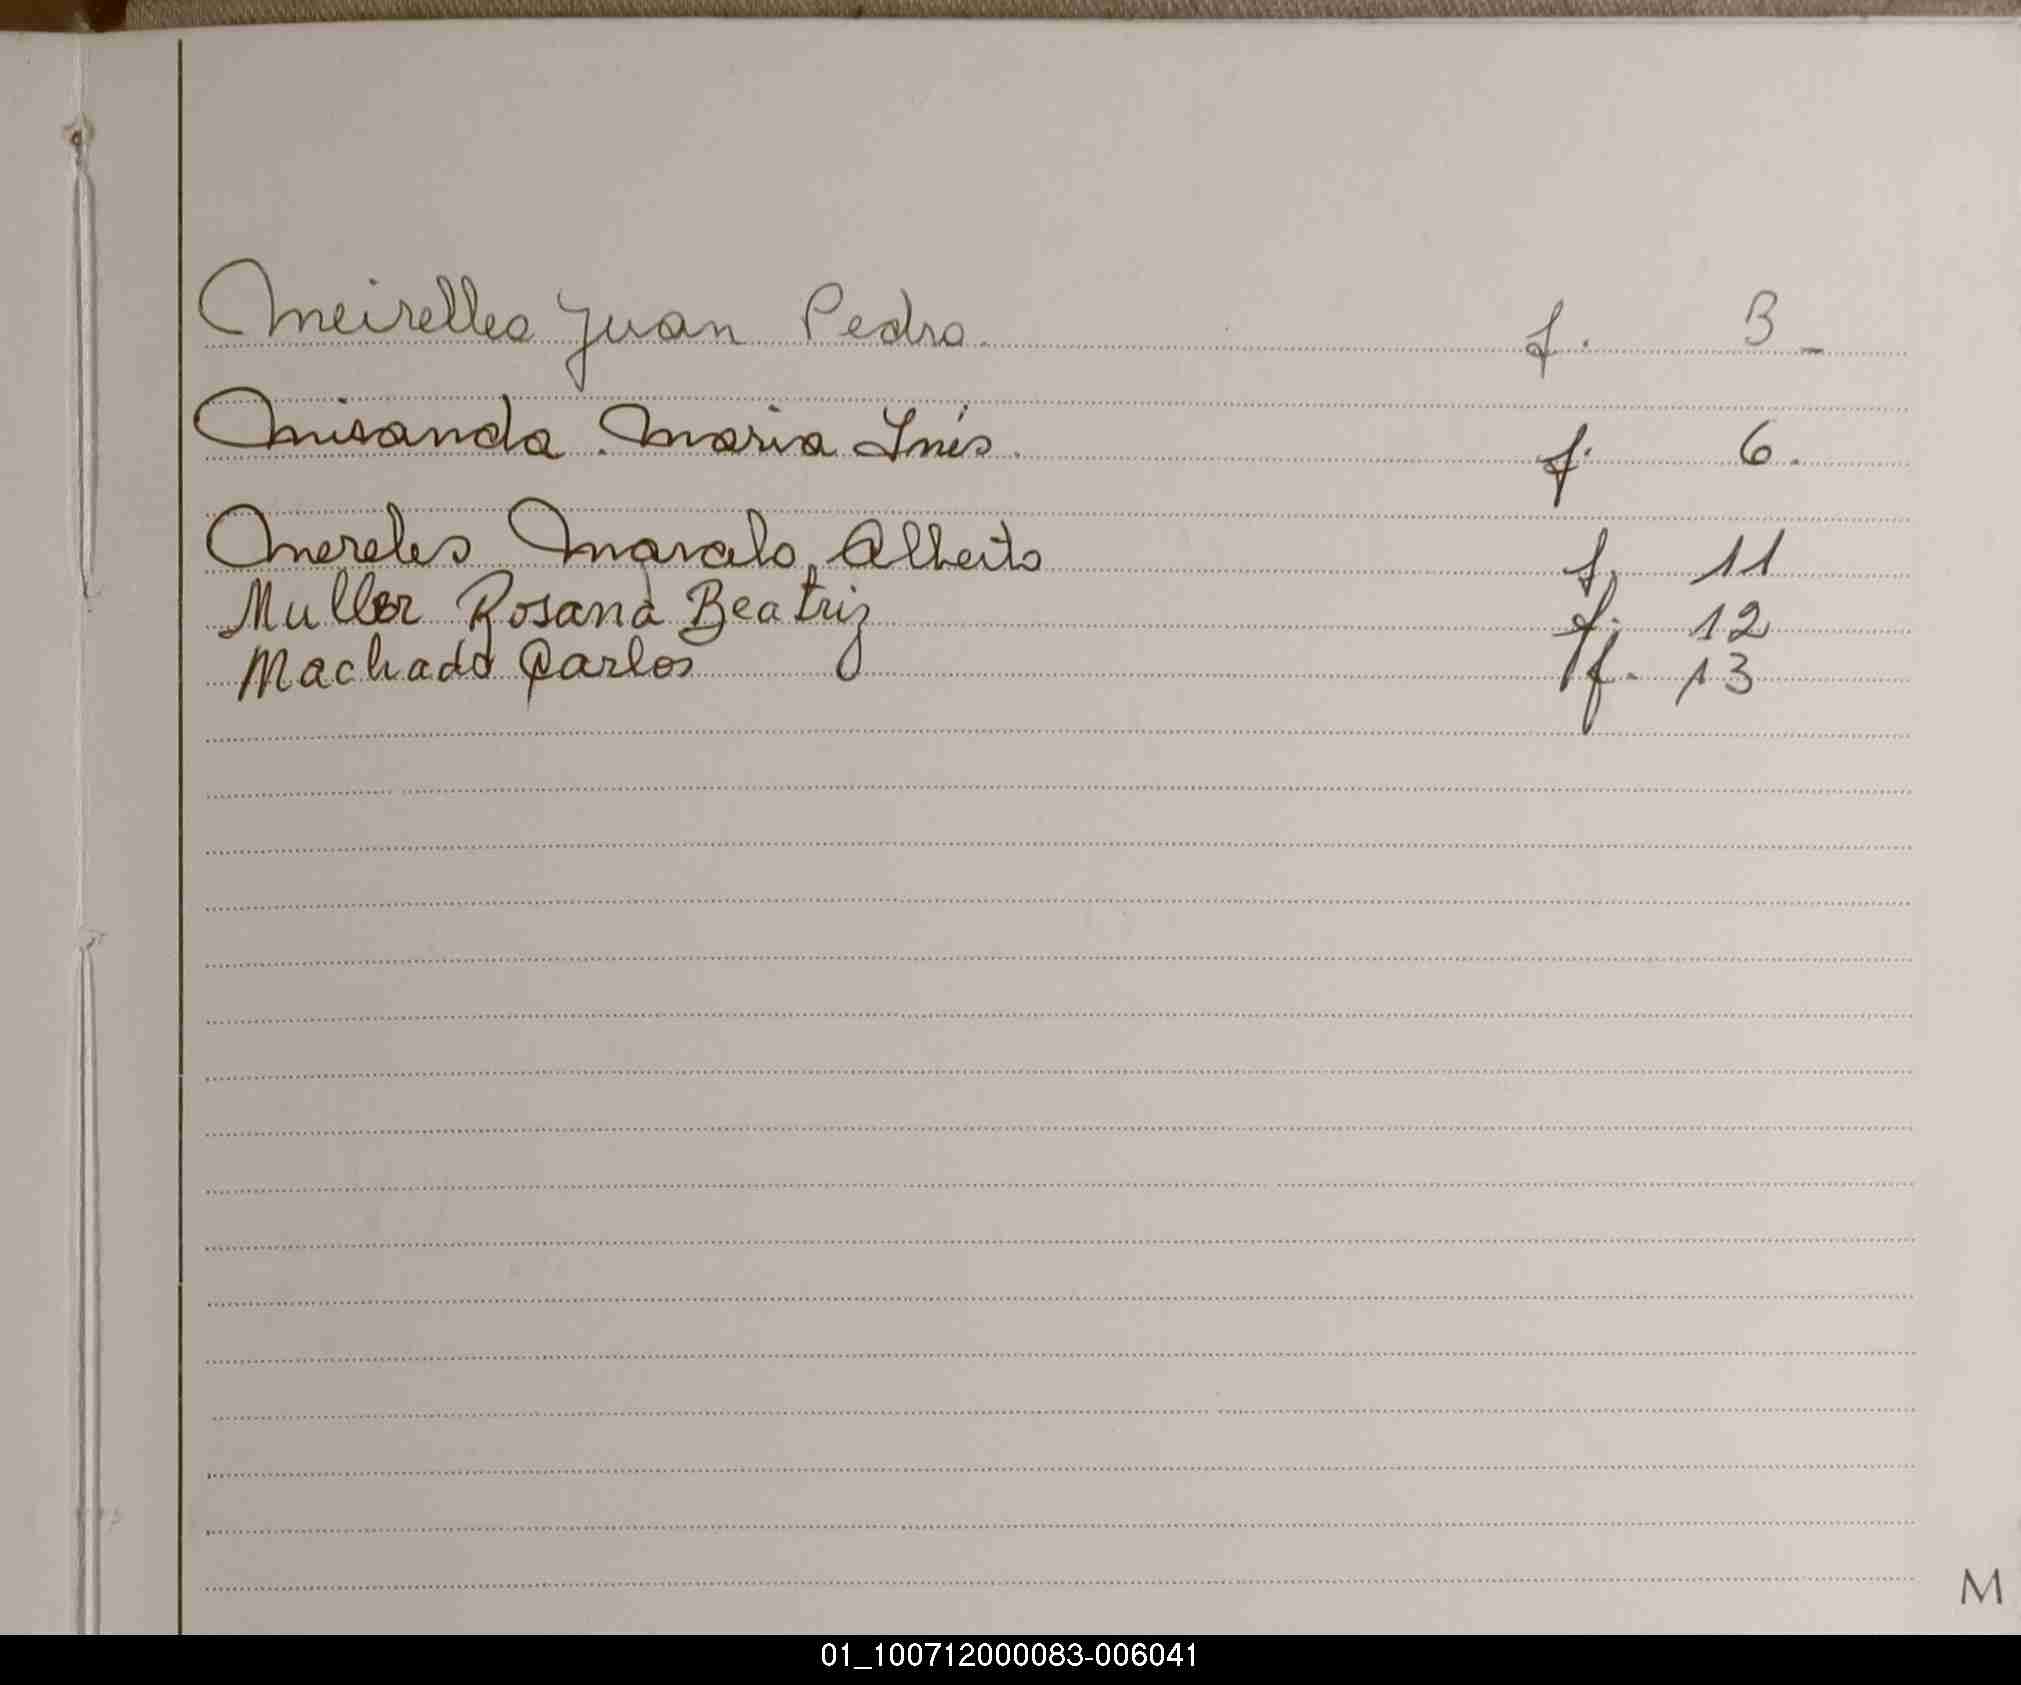 Meirelles Juan Pedro. f. 3 -
Miranda. Maria Inés. f. 6.
Mereles Marcelo Alberto f. 11
Muller Rosana Beatriz f. 12
Machado Carlos f. 13
M
01_100712000083-006041